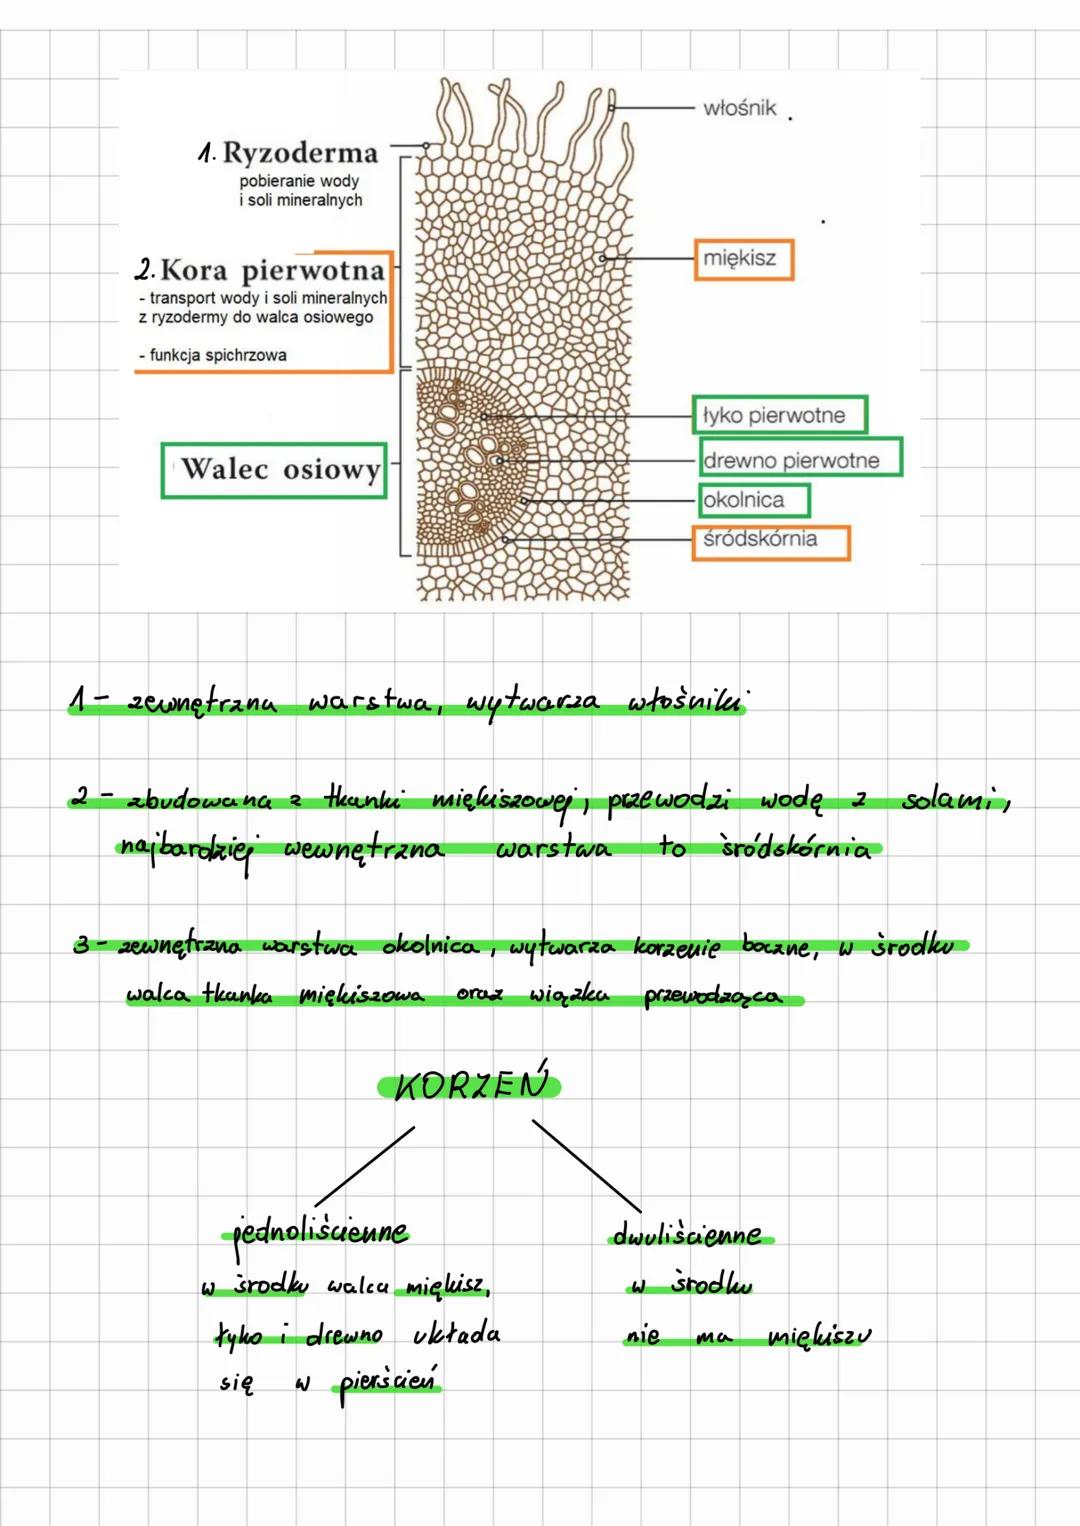 włośnik
1. Ryzoderma
pobieranie wody
i soli mineralnych
miękisz
2. Kora pierwotna
- transport wody i soli mineralnych
z ryzodermy do walca osiowego
- funkcja spichrzowa
łyko pierwotne
drewno pierwotne
Walec osiowy
okolnica
śródskórnia
1 - zewnętrzna warstwa, wytwarza włośniki
2 - zbudowana z tkanki miękiszowej, przewodzi wodę z solami,
najbardziej wewnętrzna warstwa to śródskórnia
3 - zewnętrzna warstwa okolnica, wytwarza korzenie boczne, w środku
walca tkanka miękiszowa oraz wiązka przewodząca
KORZEŃ
jednoliścienne
w środku walca miękisz,
łyko i drewno układa
się w pierścień
dwuliścienne
w środku
nie ma miękiszu